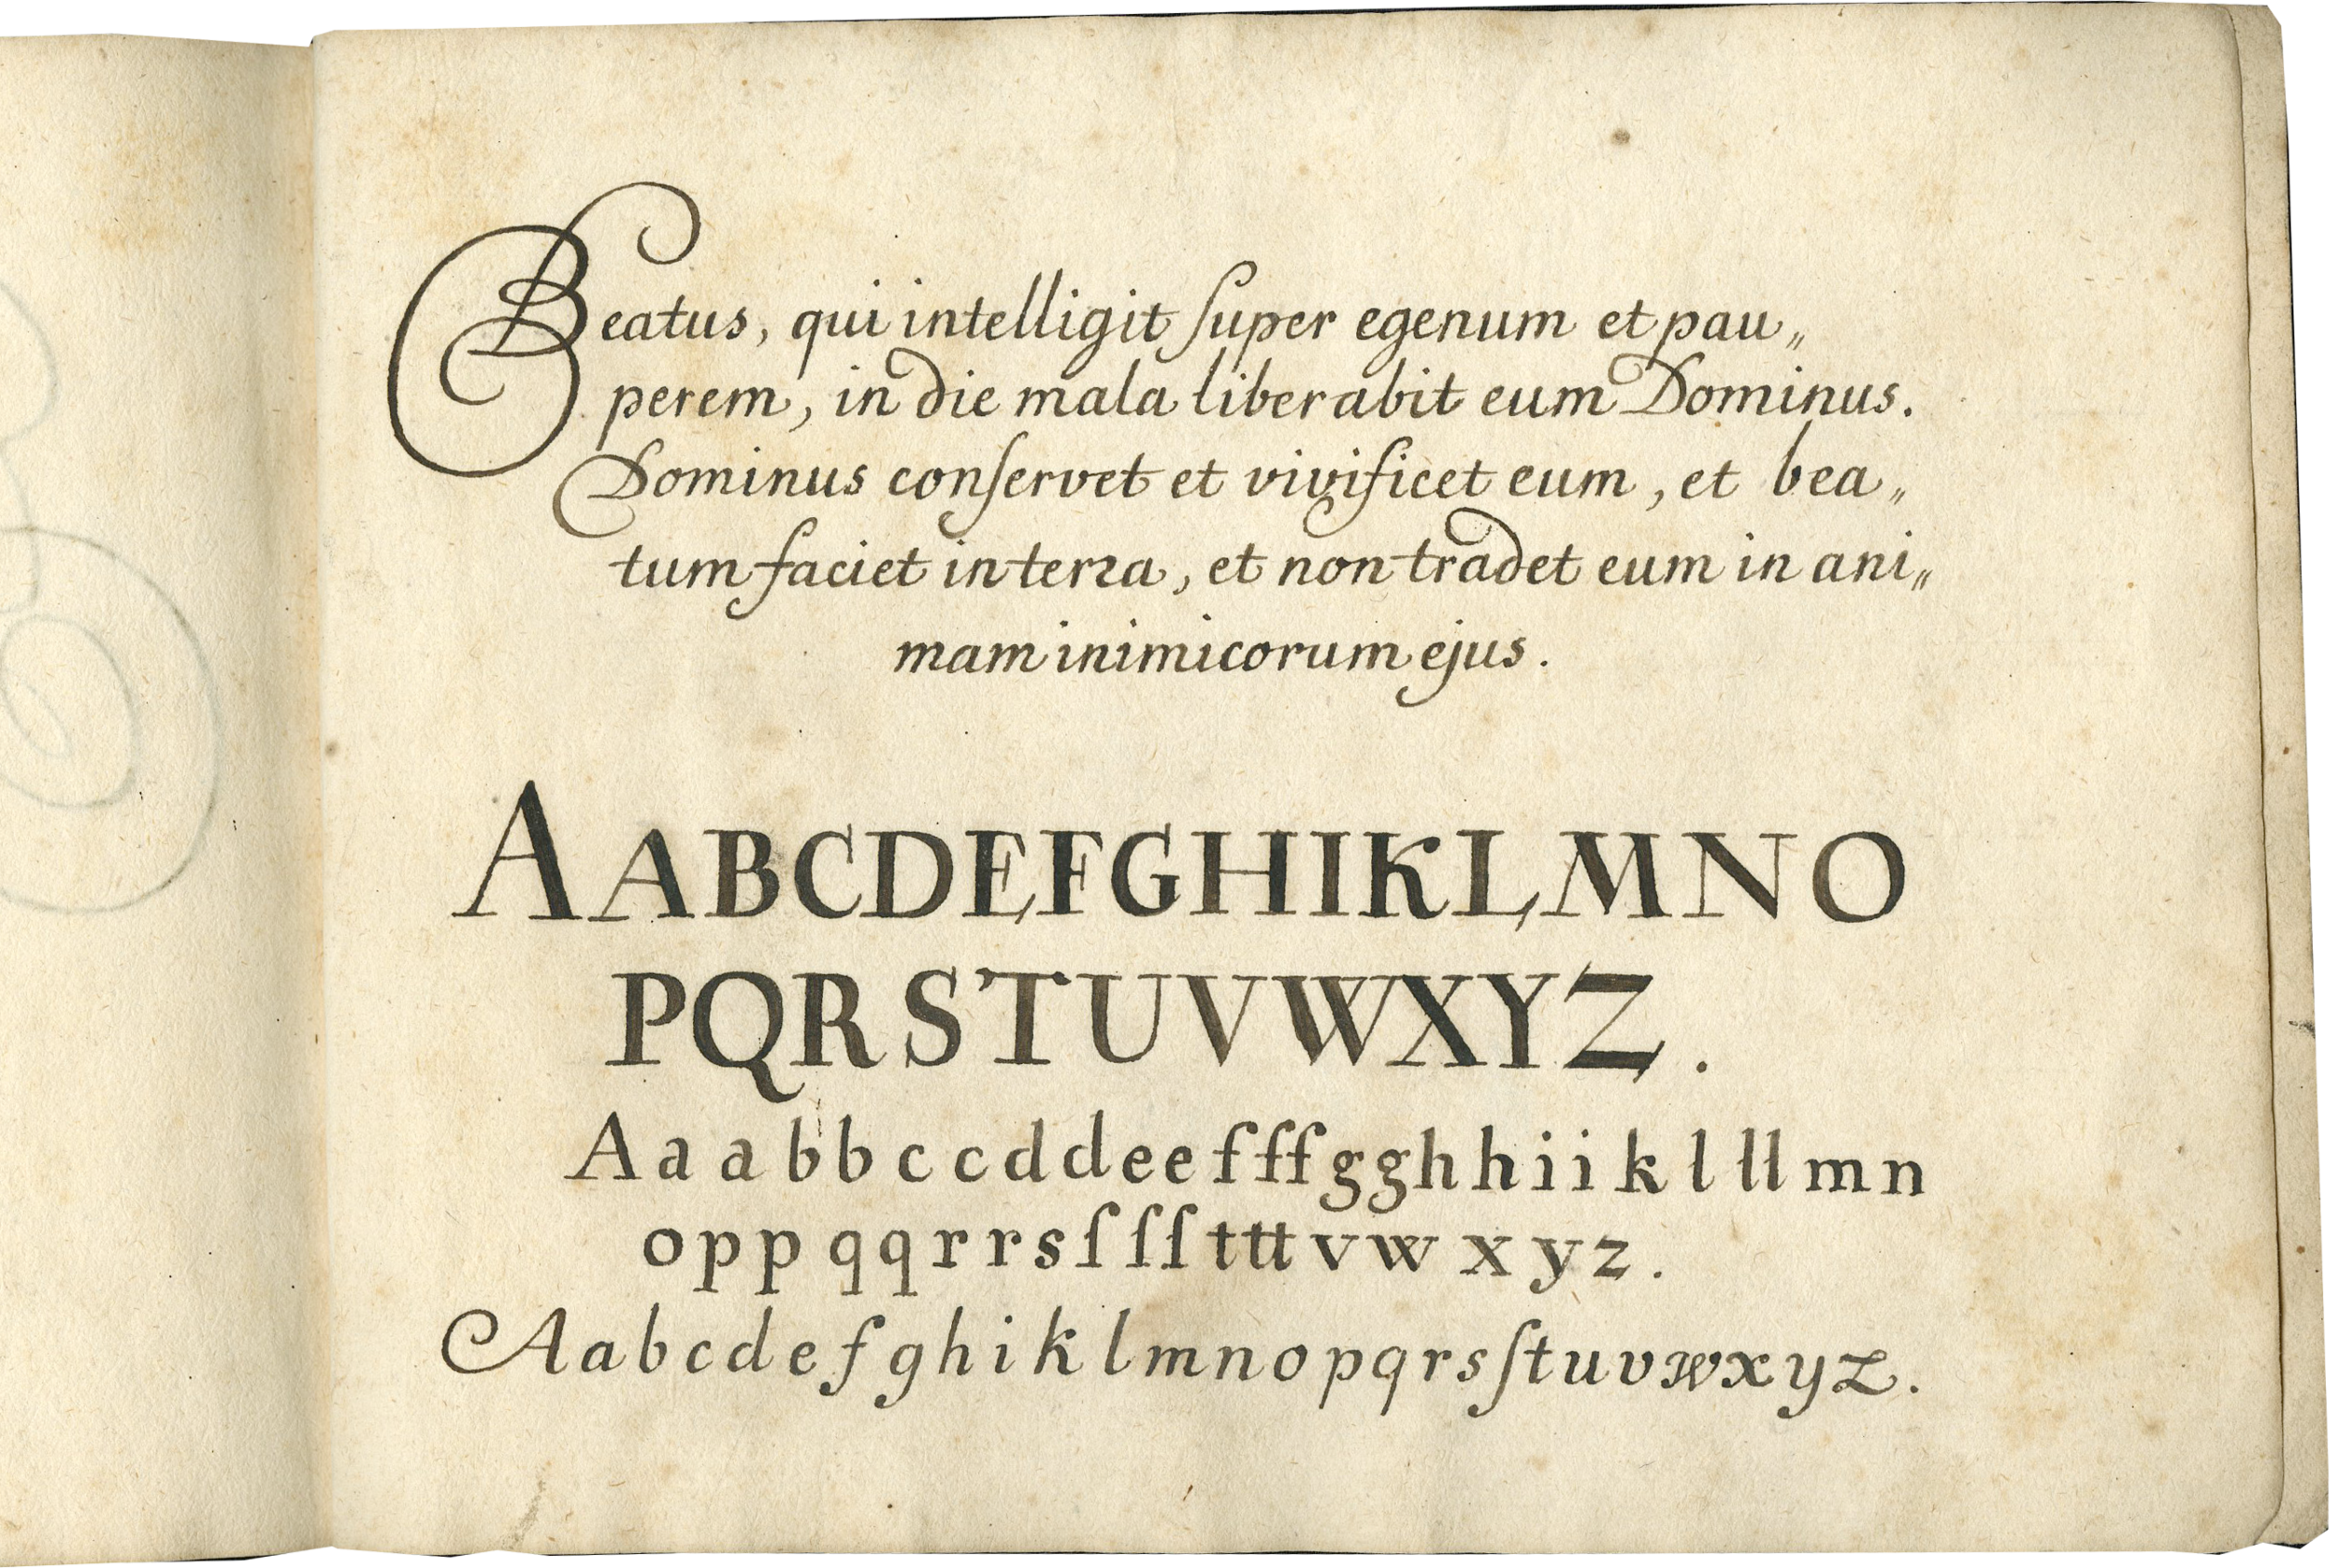 Beatus, qui intelligit ſuper egenum et pau„
perem, in die mala liberabit eum Dominus.
Dominus conſervet et vivificet eum, et bea„
tum faciet in terra, et non tradet eum in ani„
mam inimicorum ejus.
A A B C D E F G H I K L M N O
P Q R S T U V W X Y Z .
A a a b b c c d d e e f f f g g h h i i k l l l m n
o p p q q r r s ſ ſ ſ t t t v w x y z .
A a b c d e f g h i k l m n o p q r s ſ t u v w x y z .